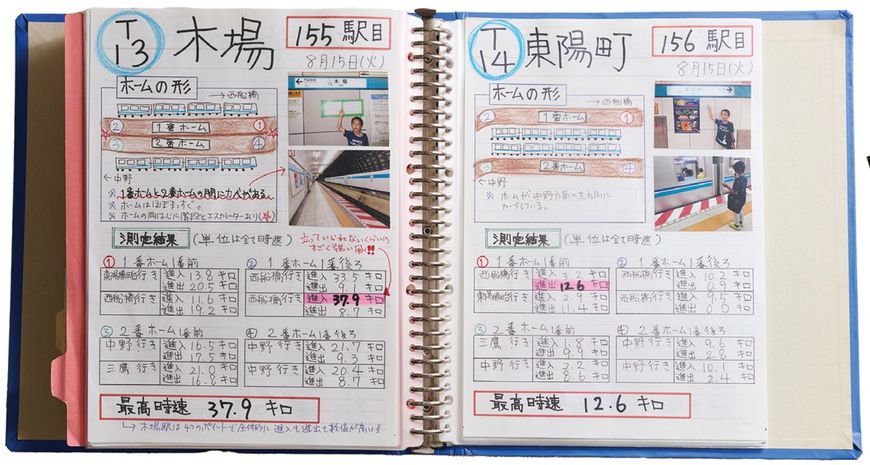 T
13
木場
155 駅目
8月15日(火)
ホームの形
→西船橋
② 1番ホーム ①
③ 2番ホーム ④
←中野
※1番ホームと2番ホームの間にカベがある。
※ホームはほぼまっすぐ。
※ホームの両はじに階段とエスカレーターあり(★)
木場
測定結果 (単位は全て時速)
立っていられないくらいの
すごく強い風!!
① 1番ホーム1番前
東葉勝田台行き 進入 13.8 キロ
進出 20.5 キロ
西船橋行き 進入 11.6 キロ
進出 19.2 キロ
② 1番ホーム1番後ろ
西船橋行き 進入 33.5 キロ
進出 9.1 キロ
西船橋行き 進入 37.9 キロ
進出 8.7 キロ
③ 2番ホーム1番前
中野行き 進入 16.5 キロ
進出 17.5 キロ
三鷹行き 進入 21.0 キロ
進出 16.8 キロ
④ 2番ホーム1番後ろ
中野行き 進入 21.7 キロ
進出 9.3 キロ
中野行き 進入 20.4 キロ
進出 8.7 キロ
最高時速 37.9 キロ
→木場駅は4つのポイントで全体的に進入も進出も数値が高い!!
T
14
東陽町
156 駅目
8月15日(火)
ホームの形
→西船橋
② 1番ホーム ①
③ 2番ホーム ④
←中野
※ホームが中野方面の左方向に
カーブしている。
測定結果 (単位は全て時速)
① 1番ホーム1番前
西船橋行き 進入 3.2 キロ
進出 12.6 キロ
東葉勝田台行き 進入 2.9 キロ
進出 11.4 キロ
② 1番ホーム1番後ろ
西船橋行き 進入 10.2 キロ
進出 0.9 キロ
西船橋行き 進入 9.5 キロ
進出 0.0 キロ
③ 2番ホーム1番前
三鷹行き 進入 1.8 キロ
進出 9.9 キロ
中野行き 進入 2.2 キロ
進出 8.6 キロ
④ 2番ホーム1番後ろ
中野行き 進入 9.6 キロ
進出 2.8 キロ
中野行き 進入 10.1 キロ
進出 2.4 キロ
最高時速 12.6 キロ